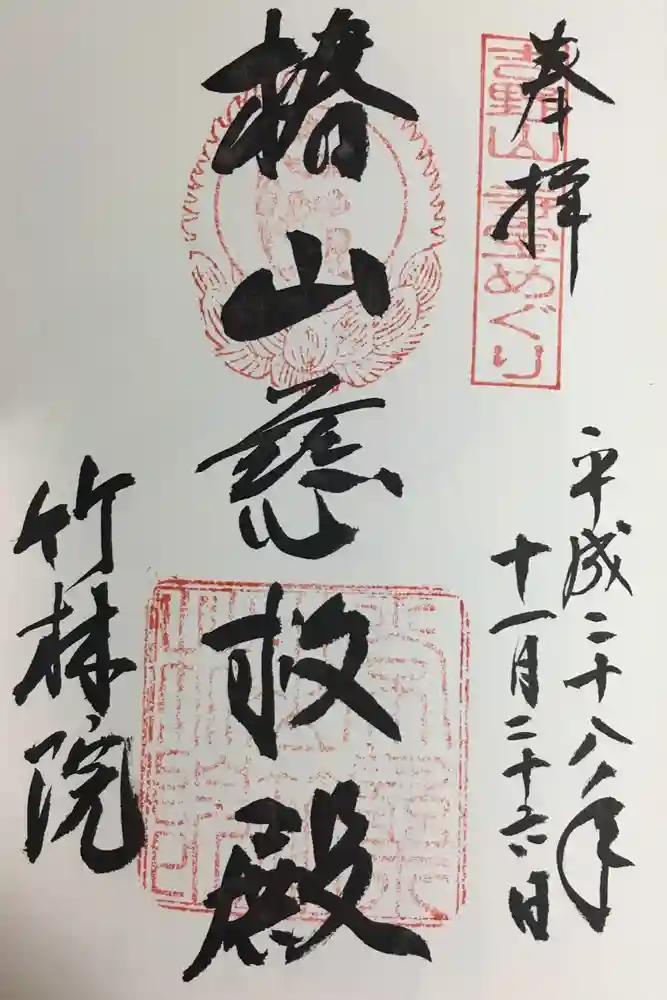 奉拝
吉野山 霊宝めぐり
平成二十八年
十一月二十六日
椿山慈救殿
竹林院